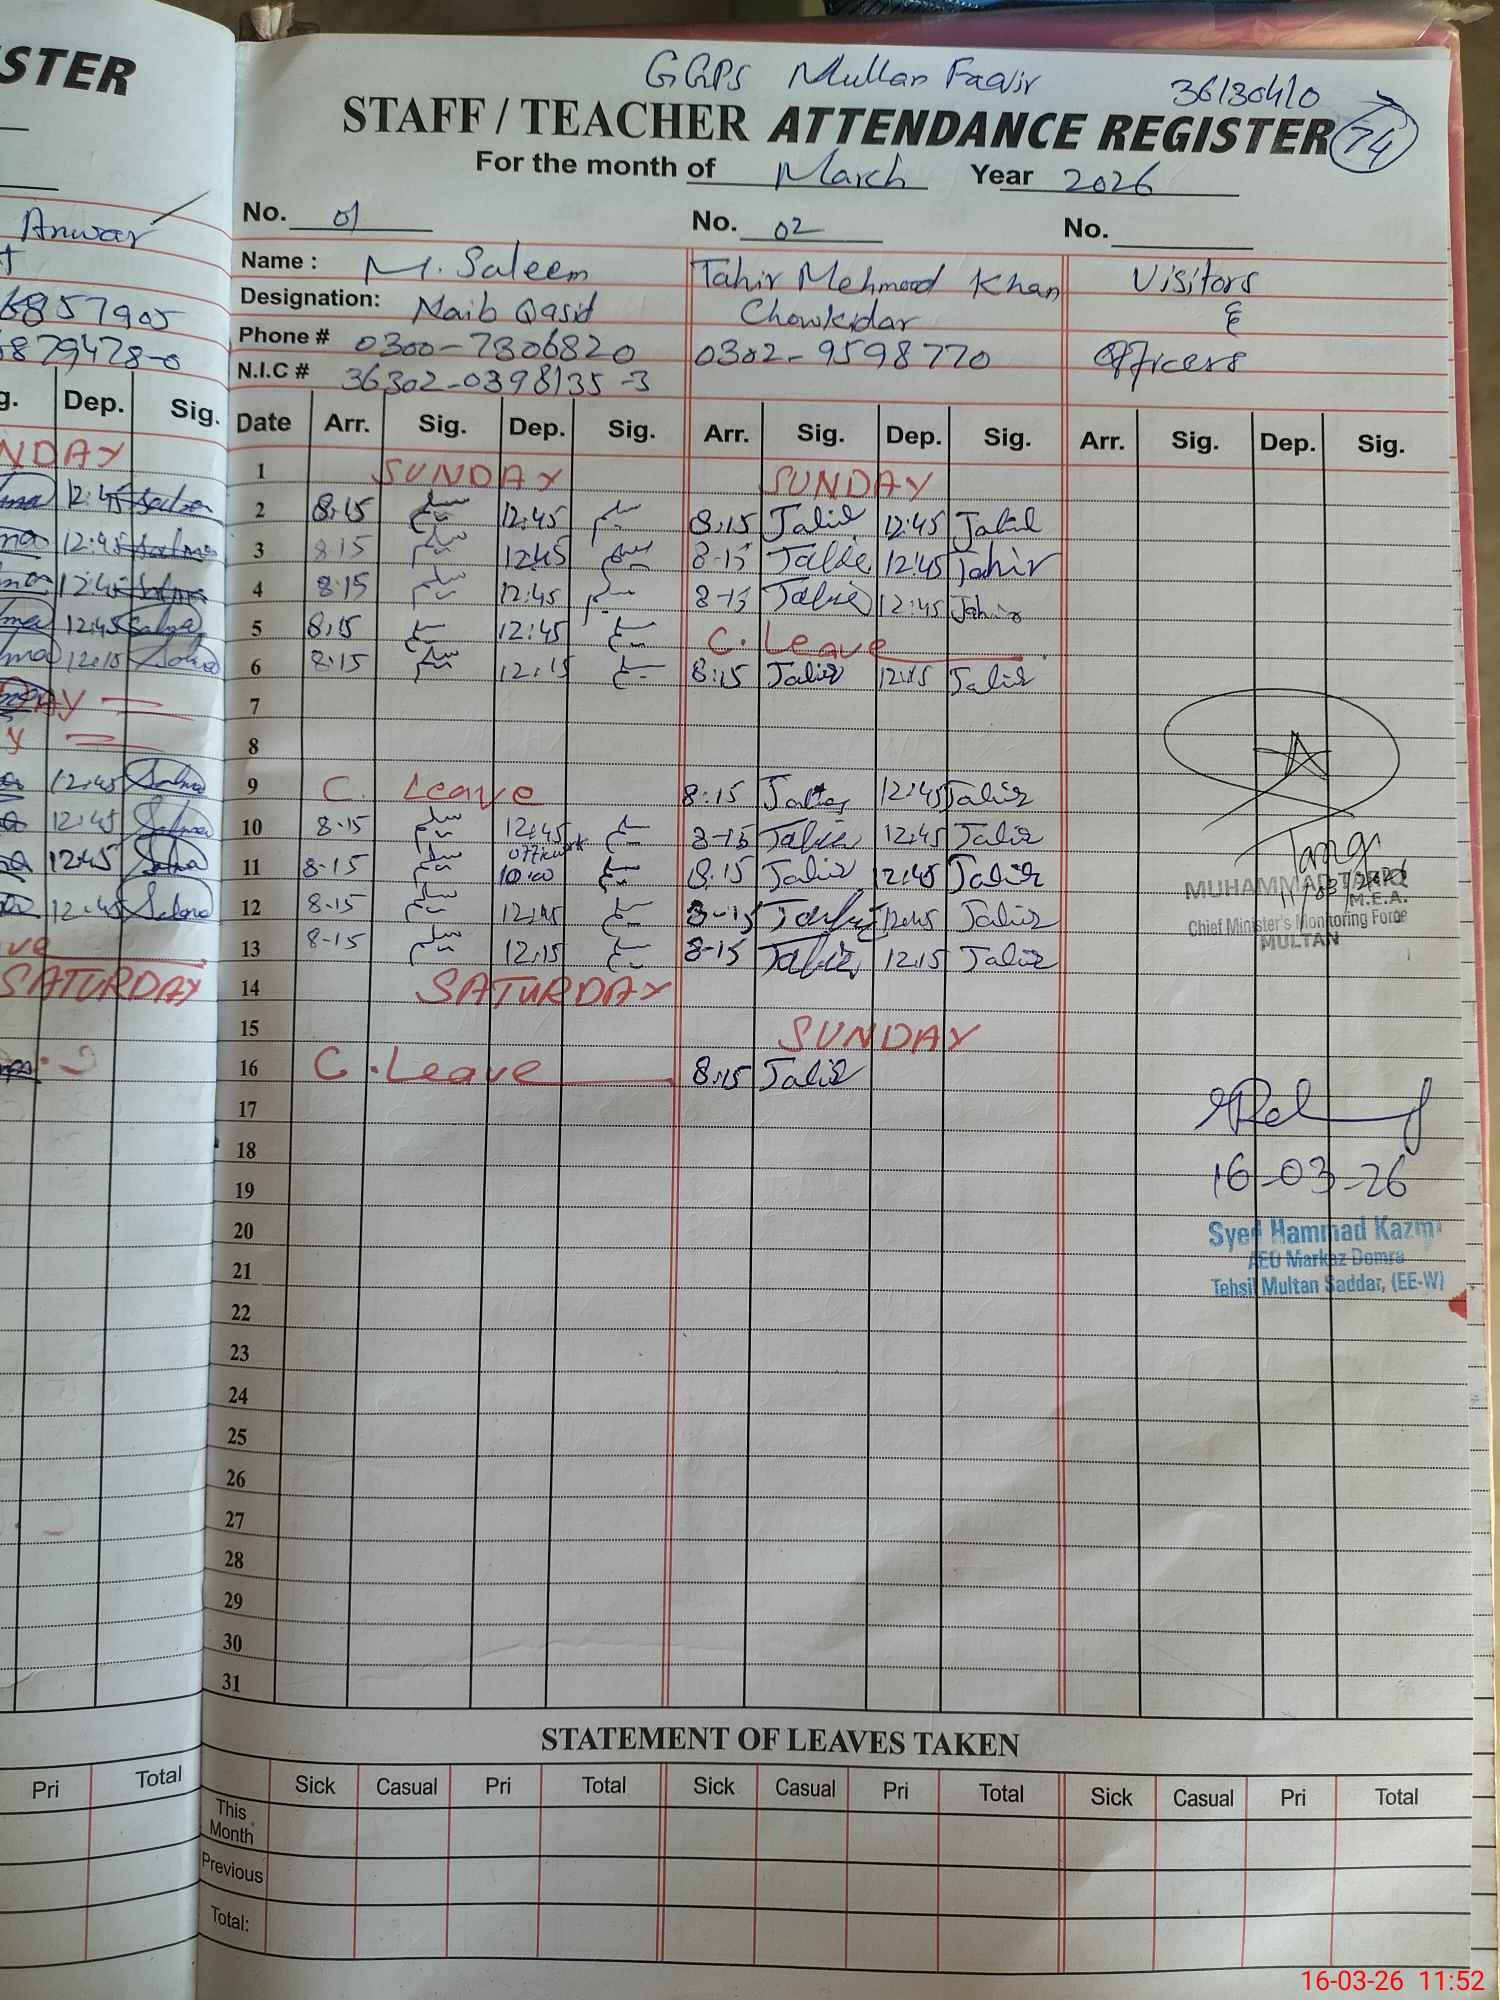 STER
GGPS Mullan Faqir 36130410
STAFF / TEACHER ATTENDANCE REGISTER 74
For the month of March Year 2026
No. 01 No. 02 No.
Anwar
Name : M. Saleem Tahir Mehmood Khan Visitors
Designation: Naib Qasid Chowkidar &
Phone # 0300-7306820 0302-9598770 Officers
N.I.C # 36302-0398135-3
Dep. Sig. Date Arr. Sig. Dep. Sig. Arr. Sig. Dep. Sig. Arr. Sig. Dep. Sig.
NDAY 1 SUNDAY SUNDAY
12:45 2 8:15 سلیم 12:45 سلیم 8:15 Tahir 12:45 Tahir
12:45 3 8:15 سلیم 12:45 سلیم 8-15 Tahir 12:45 Tahir
12:45 4 8:15 سلیم 12:45 سلیم 8-15 Tahir 12:45 Tahir
12:45 5 8:15 سلیم 12:45 سلیم C. Leave
12:15 6 8:15 سلیم 12:15 سلیم 8:15 Tahir 12:15 Tahir
7
8
12:45 9 C. Leave 8:15 Tahir 12:45 Tahir
12:45 10 8-15 سلیم 12:45 سلیم 8-15 Tahir 12:45 Tahir
12:45 11 8-15 سلیم 10:00 سلیم 8:15 Tahir 12:45 Tahir
12:45 12 8-15 سلیم 12:45 سلیم 8-15 Tahir 12:45 Tahir
13 8-15 سلیم 12:15 سلیم 8-15 Tahir 12:15 Tahir
SATURDAY 14 SATURDAY
15 SUNDAY
16 C. Leave 8:15 Tahir
17
18
19
20
21
22
23
24
25
26
27
28
29
30
31
Tariq
MUHAMMAD TARIQ
M.E.A.
Chief Minister's Monitoring Force
MULTAN
16-03-26
Syed Hammad Kazmi
AEO Markaz Domra
Tehsil Multan Saddar, (EE-W)
STATEMENT OF LEAVES TAKEN
Pri Total Sick Casual Pri Total Sick Casual Pri Total Sick Casual Pri Total
This Month
Previous
Total:
16-03-26 11:52